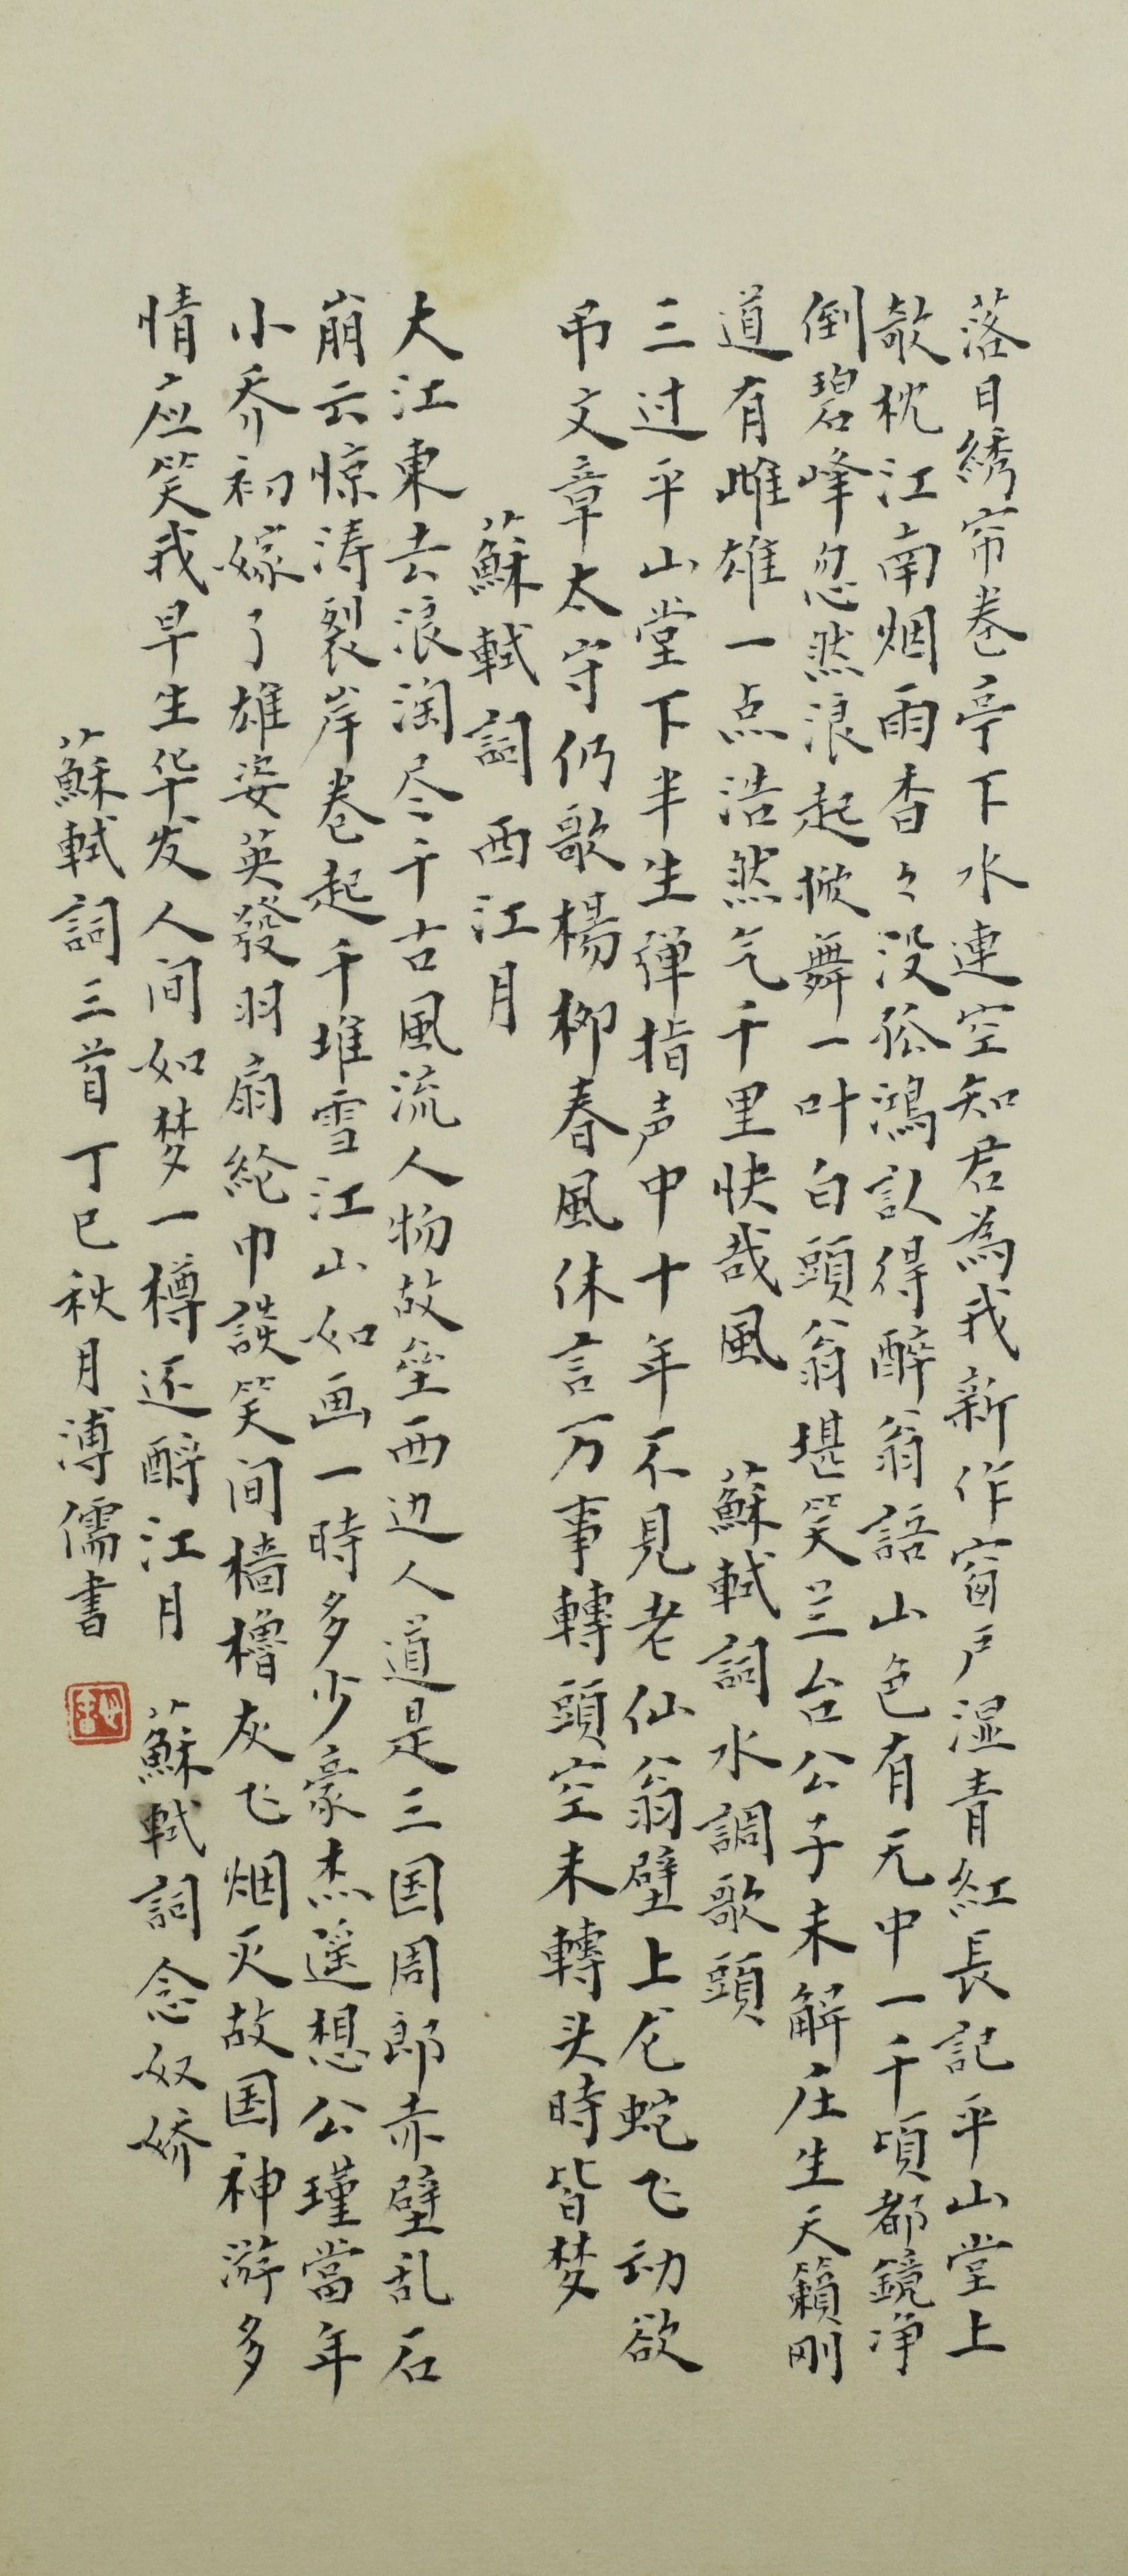 落日綉帘卷亭下水連空知君為我新作窗户湿青紅長記平山堂上
欹枕江南烟雨杳々没孤鴻認得醉翁語山色有无中一千頃都鏡净
倒碧峰忽然浪起掀舞一叶白頭翁堪笑兰台公子未解庄生天籟刚
道有雌雄一点浩然气千里快哉風 蘇軾詞水調歌頭
三过平山堂下半生弹指声中十年不見老仙翁壁上龙蛇飞动欲
吊文章太守仍歌楊柳春風休言万事轉頭空未轉头時皆梦
蘇軾詞 西江月
大江東去浪淘尽千古風流人物故垒西边人道是三国周郎赤壁乱石
崩云惊涛裂岸卷起千堆雪江山如画一時多少豪杰遥想公瑾當年
小乔初嫁了雄姿英發羽扇綸巾談笑间檣櫓灰飞烟灭故国神游多
情应笑我早生华发人间如梦一樽还酹江月 蘇軾詞念奴娇
蘇軾詞三首丁巳秋月溥儒書